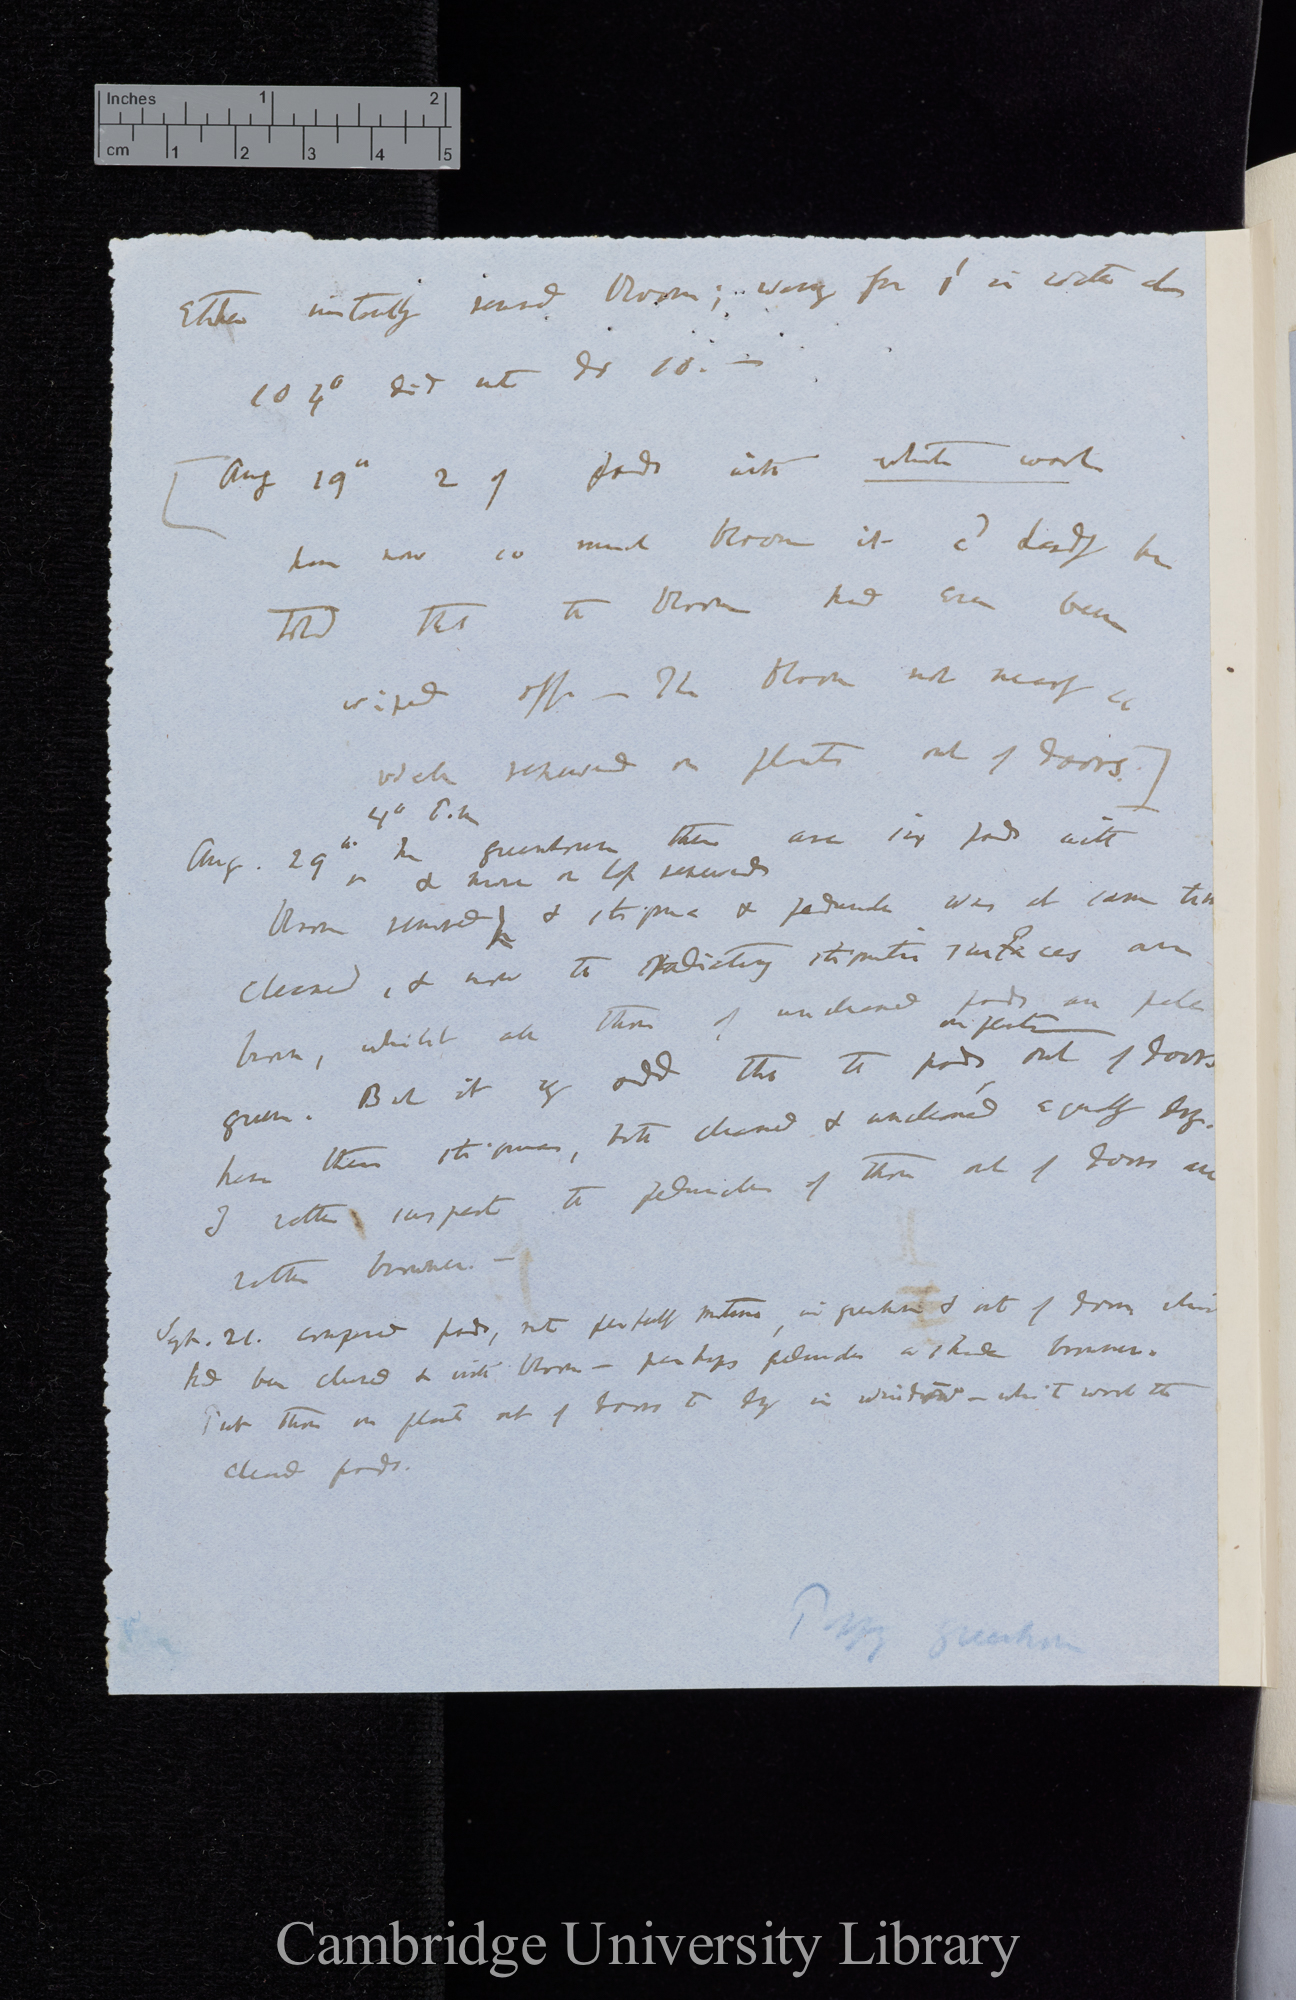 Inches 1 2
cm 1 2 3 4 5
Ether instantly removed bloom; waving for 1' in water
104° did not do so. —
[Aug 19th 2 of pods with white wool
have now so much bloom it cd hardly be
told that the bloom had ever been
wiped off — The bloom not nearly as
well renewed on plants out of doors.]
4° P.m
Aug. 29th In greenhouse there are six pods with
& none or less renewed
bloom removed & stigma & peduncle was at same time
cleaned, & now the radiating stigmatic surfaces are
brown, whilst all those of uncleaned pods are pale
green. But it is odd that the pods out of doors
have their stigmas, both cleaned & uncleaned equally dry.
I rather suspect the peduncles of those out of doors are
rather browner. —
Sept. 21. compared pods, not perfectly mature, in greenhouse & out of doors which
had been cleaned & with bloom — perhaps peduncles a shade browner.
Put those on plants out of doors to dry in window — white wool the
cleaned pods.
Poppy greenhouse
Cambridge University Library